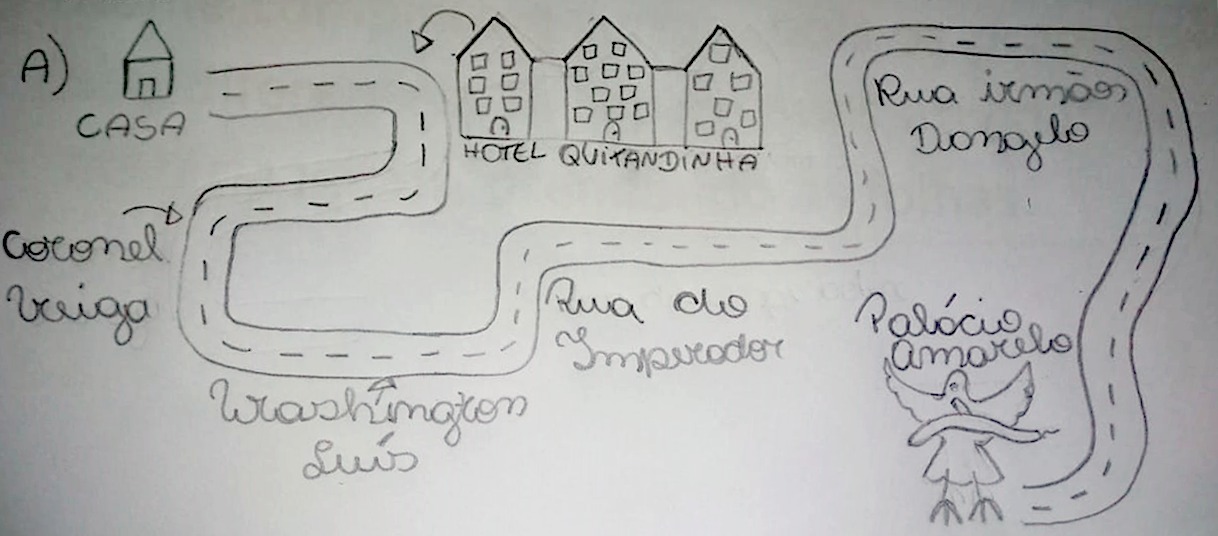 A)
CASA
HOTEL QUITANDINHA
Rua irmãos
Dongelo
Coronel
Veiga
Rua do
Imperador
Palácio
Amarelo
Washington
Luís